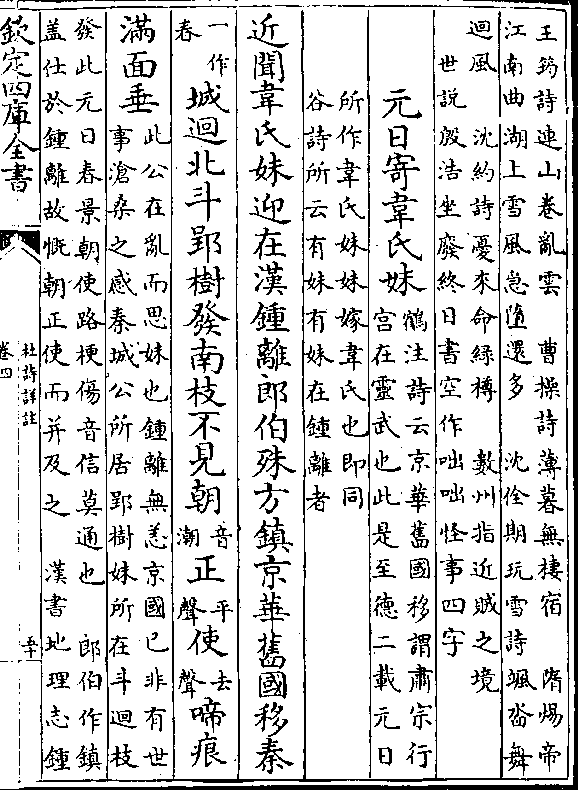 王筠詩連山卷亂雲　曹操詩薄暮無棲宿　隋煬帝
江南曲湖上雪風急墮還多　沈佺期玩雪詩颯沓舞
迴風　沈約詩憂來命緑樽　數州指近賊之境
世説殷浩坐廢終日書空作咄咄怪事四字
元日寄韋氏妹
鶴注詩云京華舊國移謂肅宗行
宫在靈武也此是至德二載元日
所作韋氏妹妹嫁韋氏也即同
谷詩所云有妹有妹在鍾離者
近聞韋氏妹迎在漢鍾離郎伯殊方鎮京華舊國移秦
一作春城迴北斗郢樹發南枝不見朝音潮正平聲使去聲啼痕
滿面垂
此公在亂而思妹也鍾離無恙京國已非有世
事滄桑之感秦城公所居郢樹妹所在斗迴枝
發此元日春景朝使路梗傷音信莫通也　郎伯作鎮
盖仕於鍾離故慨朝正使而并及之　漢書地理志鍾
欽定四庫全書
杜詩詳註
卷四